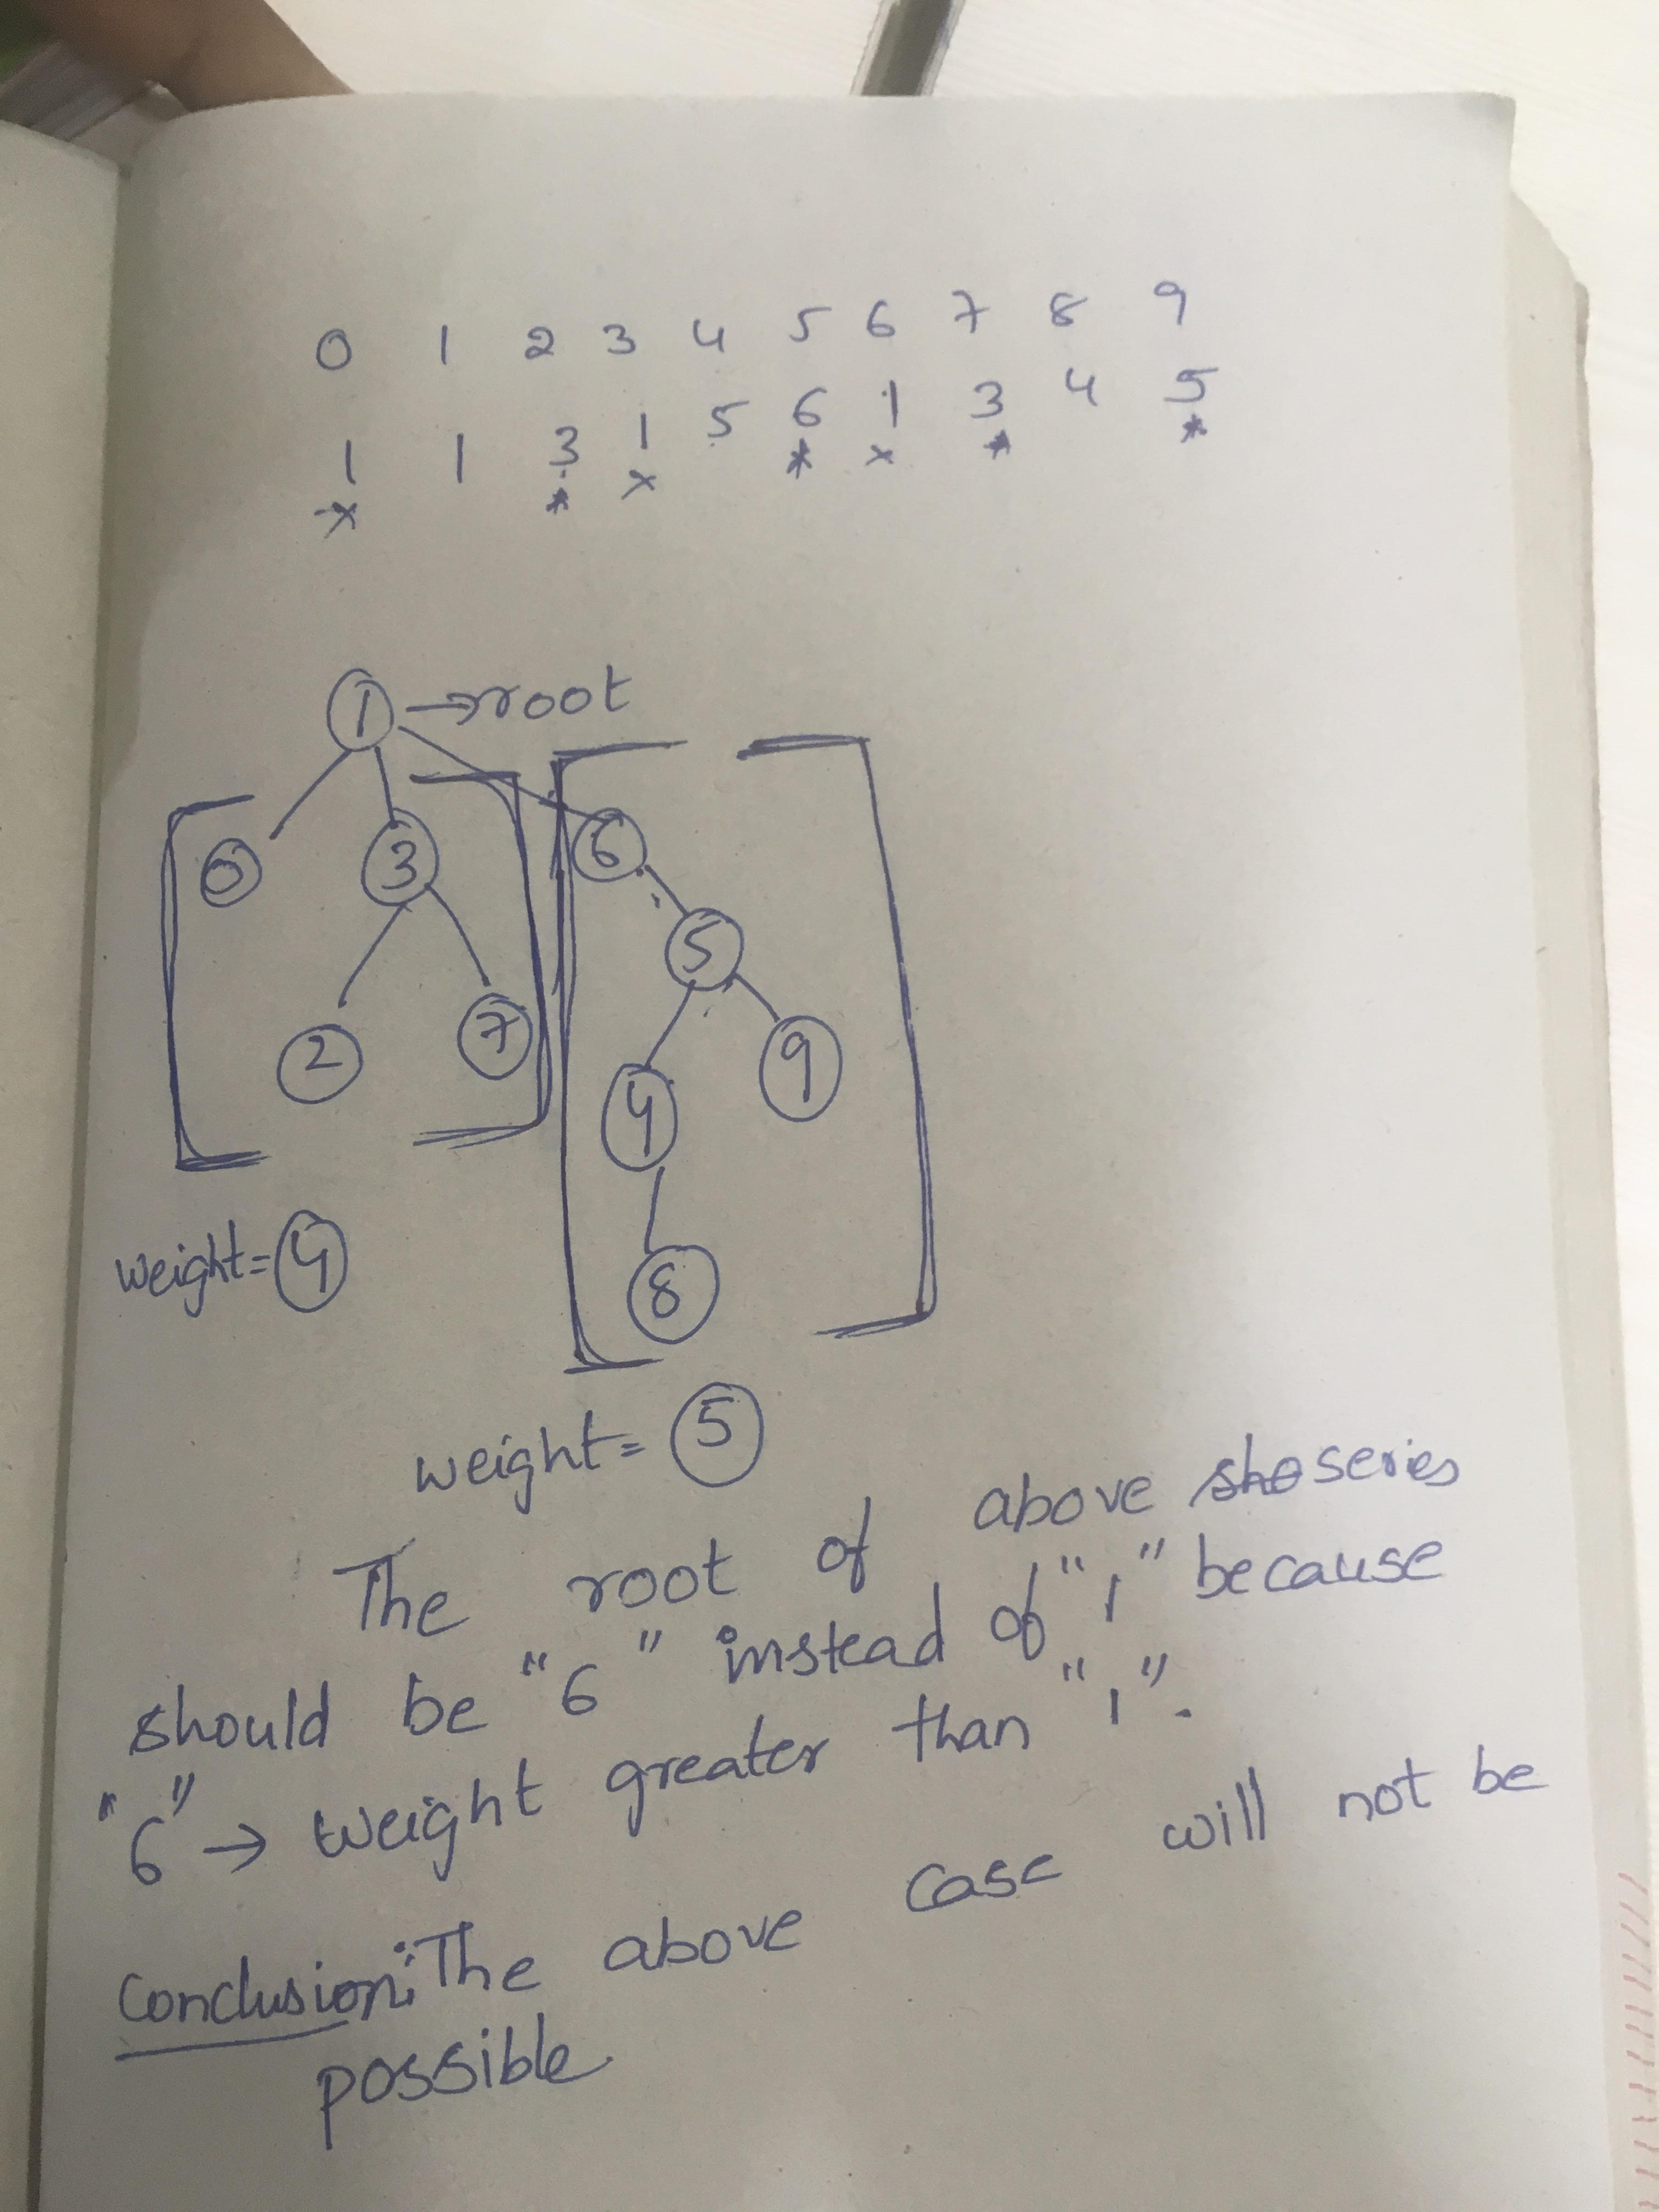 0 1 2 3 4 5 6 7 8 9
1 1 3 1 5 6 1 3 4 5
x * x * x * *
1 → root
0 3 6
5
2 7 4 9
8
weight = 4
weight = 5
The root of above series
should be "6" instead of "1" because
"6" → weight greater than "1".
Conclusion: The above case will not be
possible